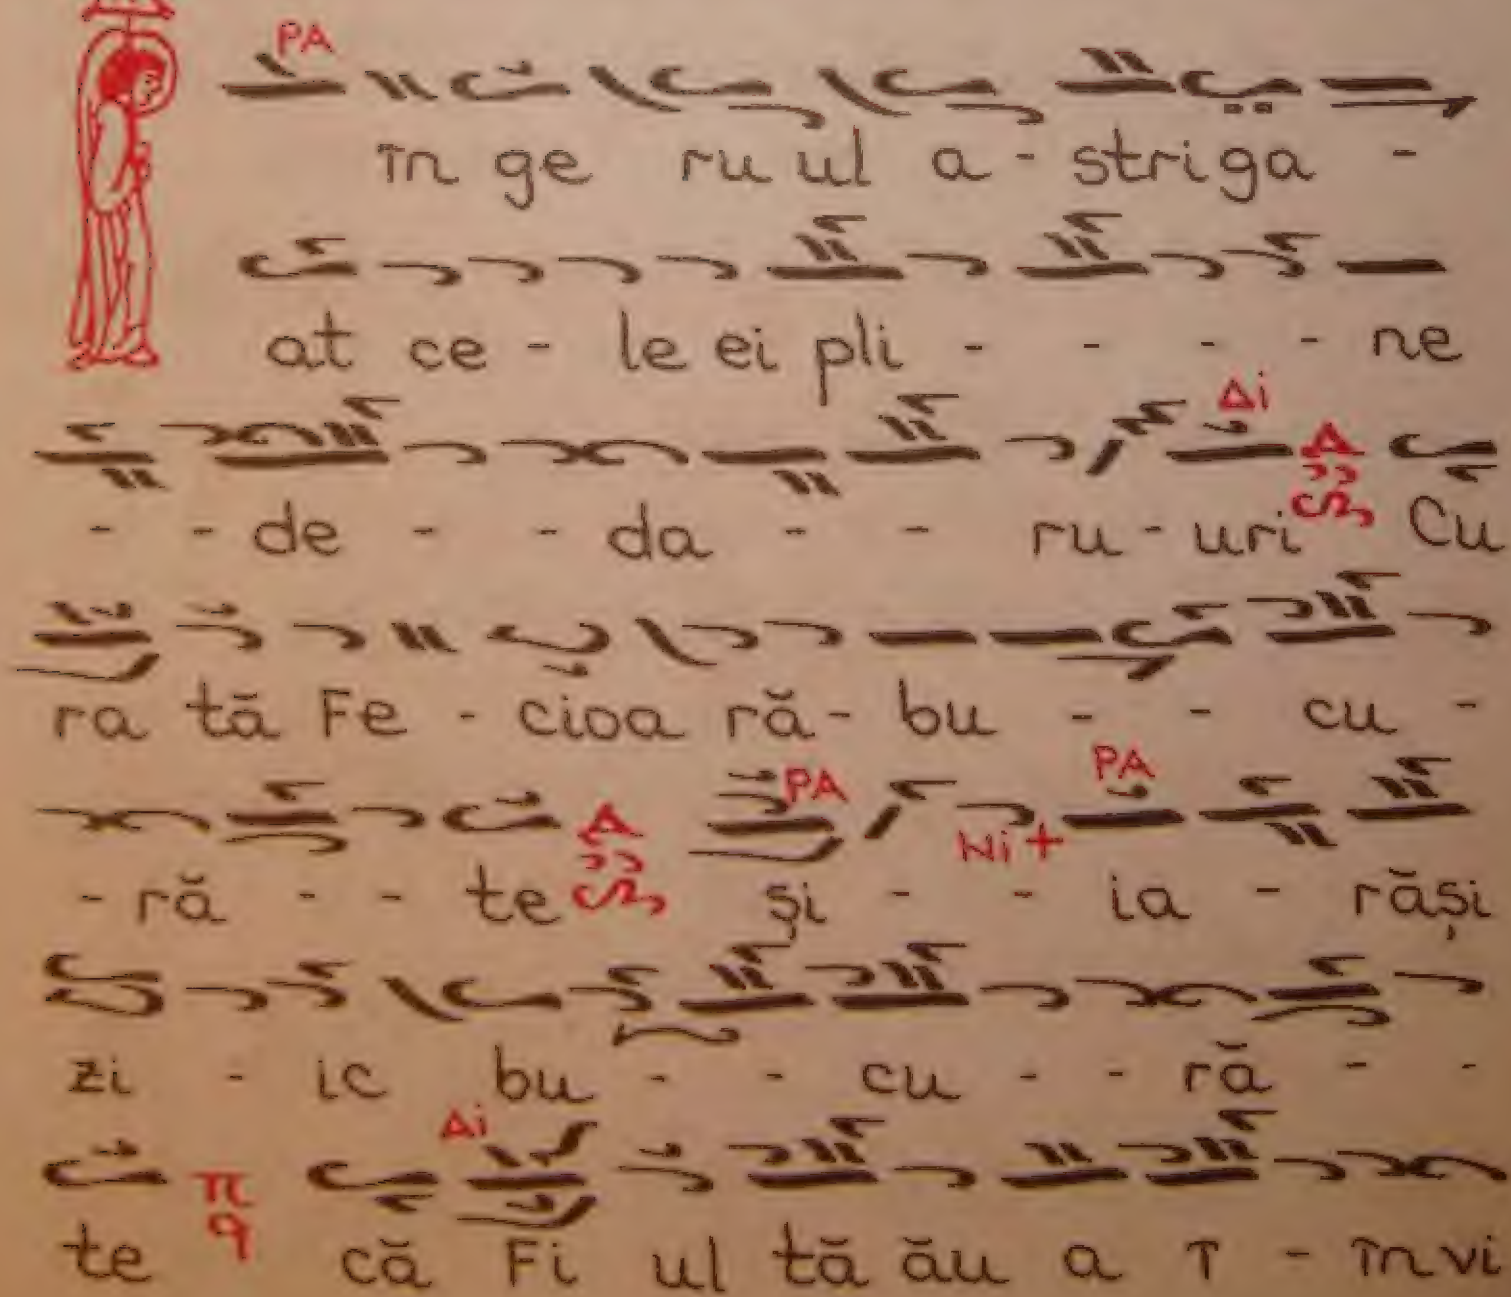 PA
în ge ru ul a - striga -
at ce - le ei pli - - - - ne
Δi
- - de - - da - - ru - uri Cu
ra tă Fe - cioa ră - bu - - cu -
PA Ni + PA
- ră - - te și - - ia - răși
zi - ic bu - - cu - - ră - -
Δi
π
q
te că Fi ul tă ău a î - învi